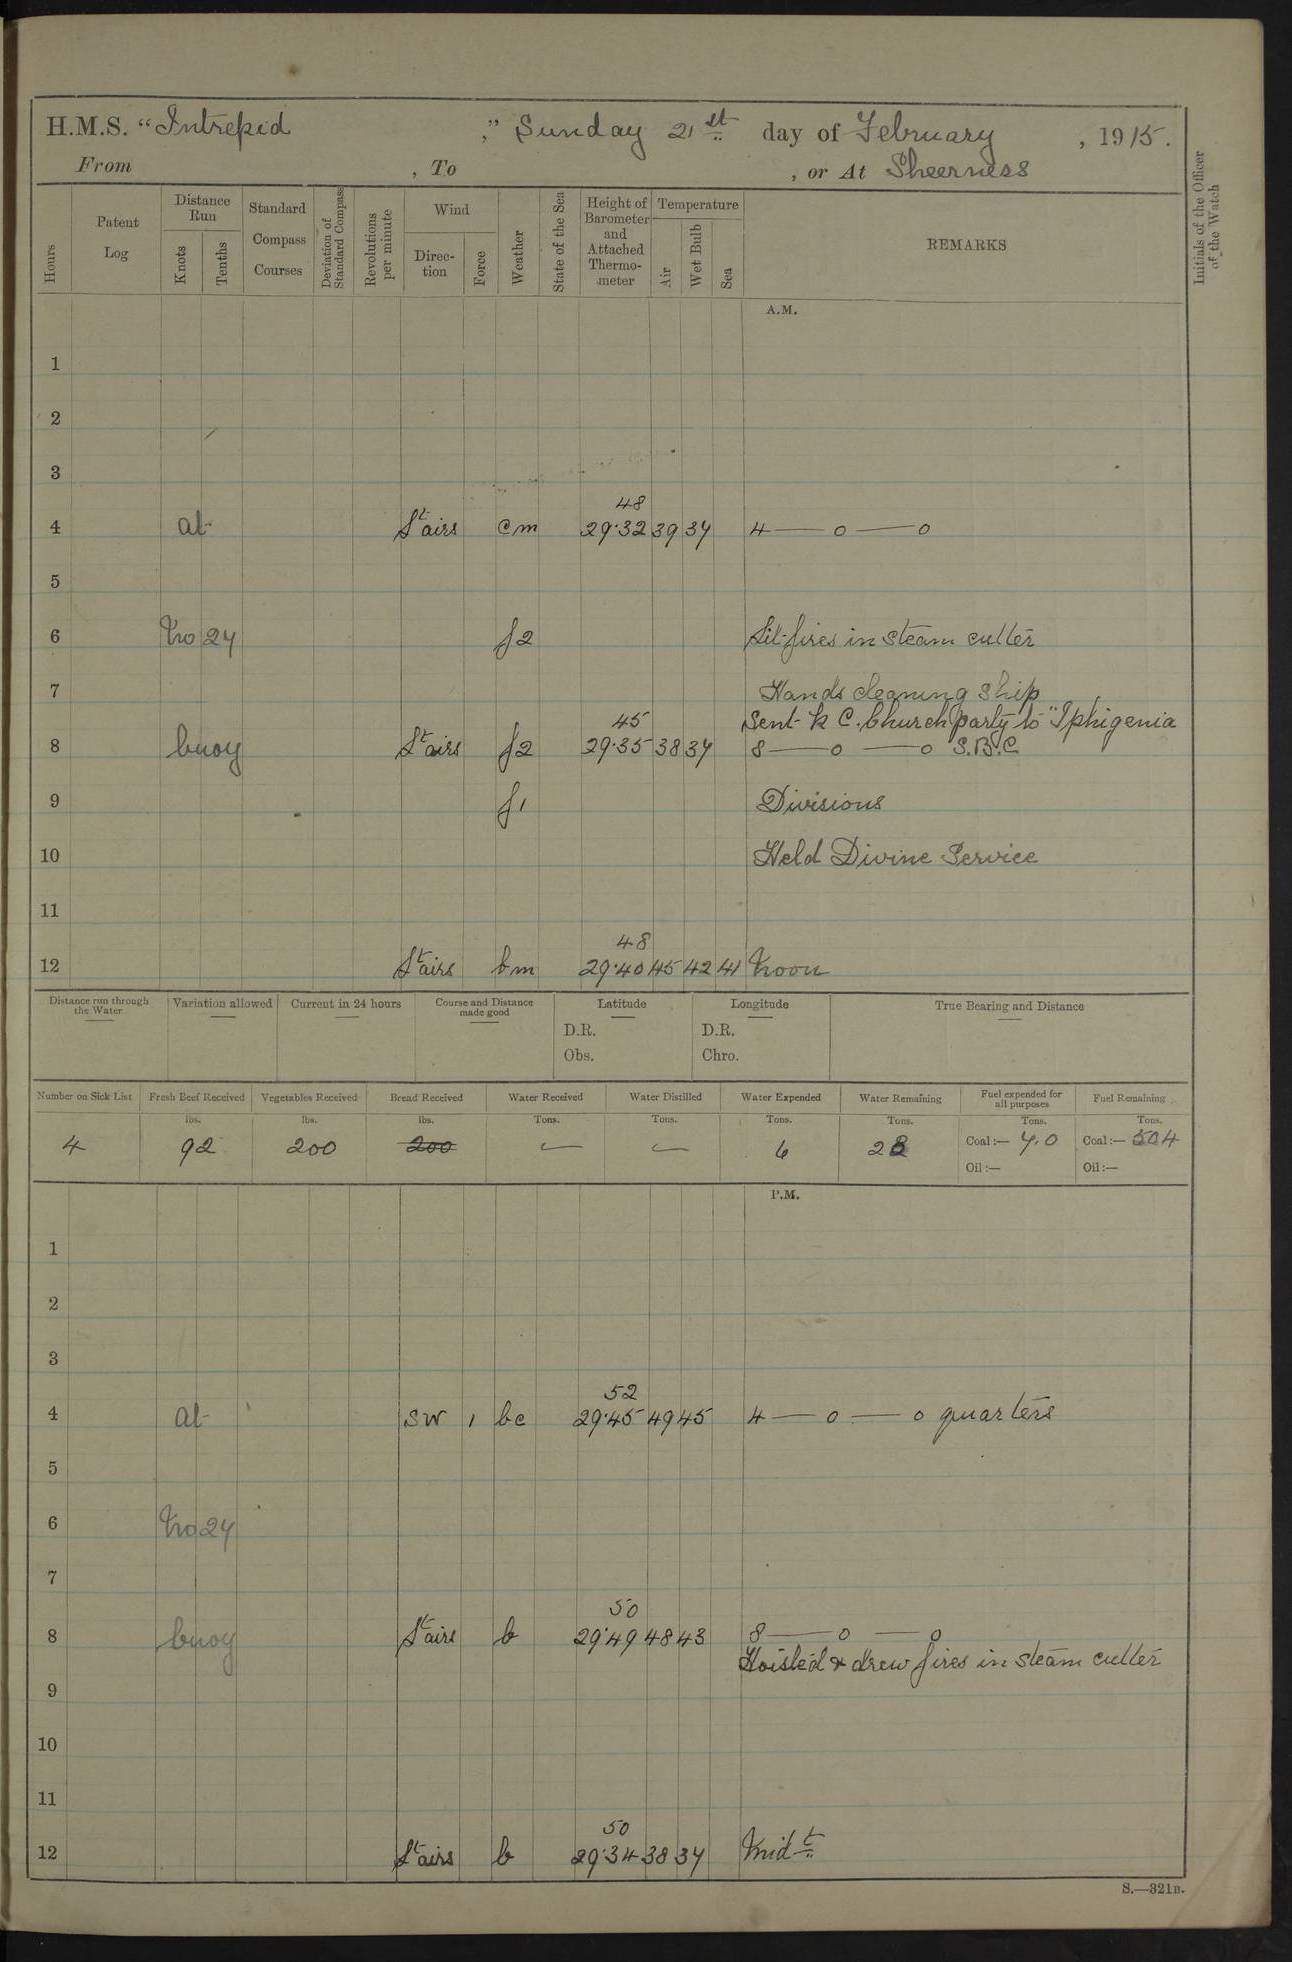 H.M.S. “Intrepid ,” Sunday 21st day of February , 1915.
From , To , or At Sheerness
Hours
Patent Log
Distance Run
Knots
Tenths
Standard Compass Courses
Deviation of Standard Compass
Revolutions per minute
Wind
Direction
Force
Weather
State of the Sea
Height of Barometer and Attached Thermometer
Temperature
Air
Wet Bulb
Sea
REMARKS
Initials of the Officer of the Watch
A.M.
1
2
3
48
4 at Lt airs cm 29.32 39 37 4 — o — o
5
6 No 27 f2 Lit fires in steam cutter
7 Hands cleaning ship
45 Sent R C. Church party to "Iphigenia
8 buoy Lt airs f2 29.35 38 37 8 — o — o S.B.C
9 f1 Divisions
10 Held Divine Service
11
48
12 Lt airs bm 29.40 45 42 41 Noon
Distance run through the Water
Variation allowed
Current in 24 hours
Course and Distance made good
Latitude
D.R.
Obs.
Longitude
D.R.
Chro.
True Bearing and Distance
Number on Sick List Fresh Beef Received Vegetables Received Bread Received Water Received Water Distilled Water Expended Water Remaining Fuel expended for all purposes Fuel Remaining
lbs. lbs. lbs. Tons. Tons. Tons. Tons. Tons. Tons.
4 92 200 200 — — 6 28 Coal :— 7.0 Coal :— 504
Oil :— Oil :—
P.M.
1
2
3
52
4 at SW 1 bc 29.45 49 45 4 — o — o quarters
5
6 No 27
7
50
8 buoy Lt airs b 29.49 48 43 8 — o — o
Hoisted & drew fires in steam cutter
9
10
11
50
12 Lt airs b 29.34 38 37 Midt
S.—321B.